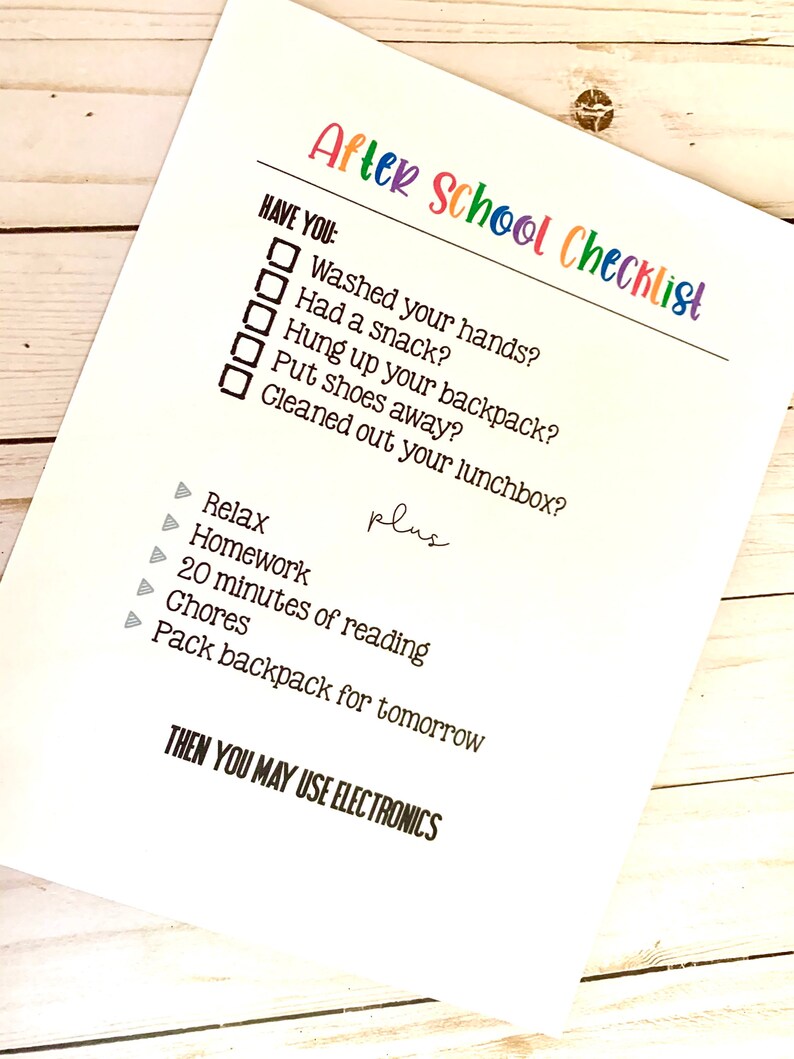 After School Checklist
HAVE YOU:
Washed your hands?
Had a snack?
Hung up your backpack?
Put shoes away?
Cleaned out your lunchbox?
plus
Relax
Homework
20 minutes of reading
Chores
Pack backpack for tomorrow
THEN YOU MAY USE ELECTRONICS